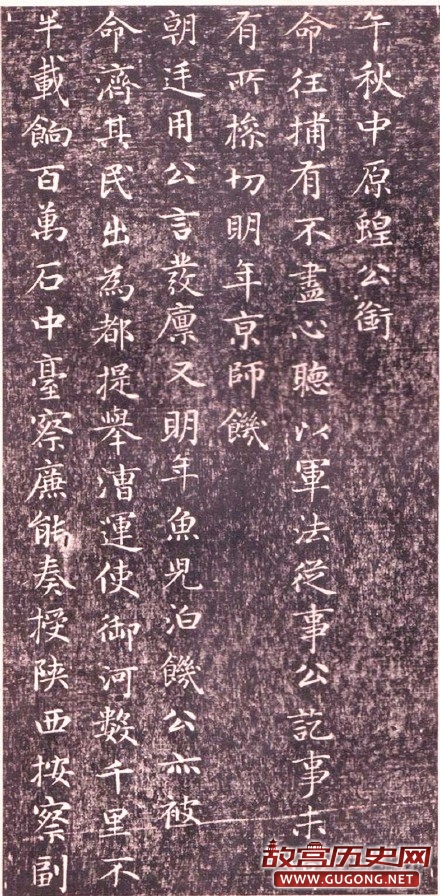 午秋中原蝗公銜
命往捕有不盡心聽以軍法從事公訖事未
有所切明年京師饑
朝廷用公言發廩又明年魚児泊饑公亦被
命濟其民出為都提舉漕運使御河數千里不
半載餉百萬石中臺察廉能奏授陝西按察副
故宫历史网
WWW.GUGONG.NET